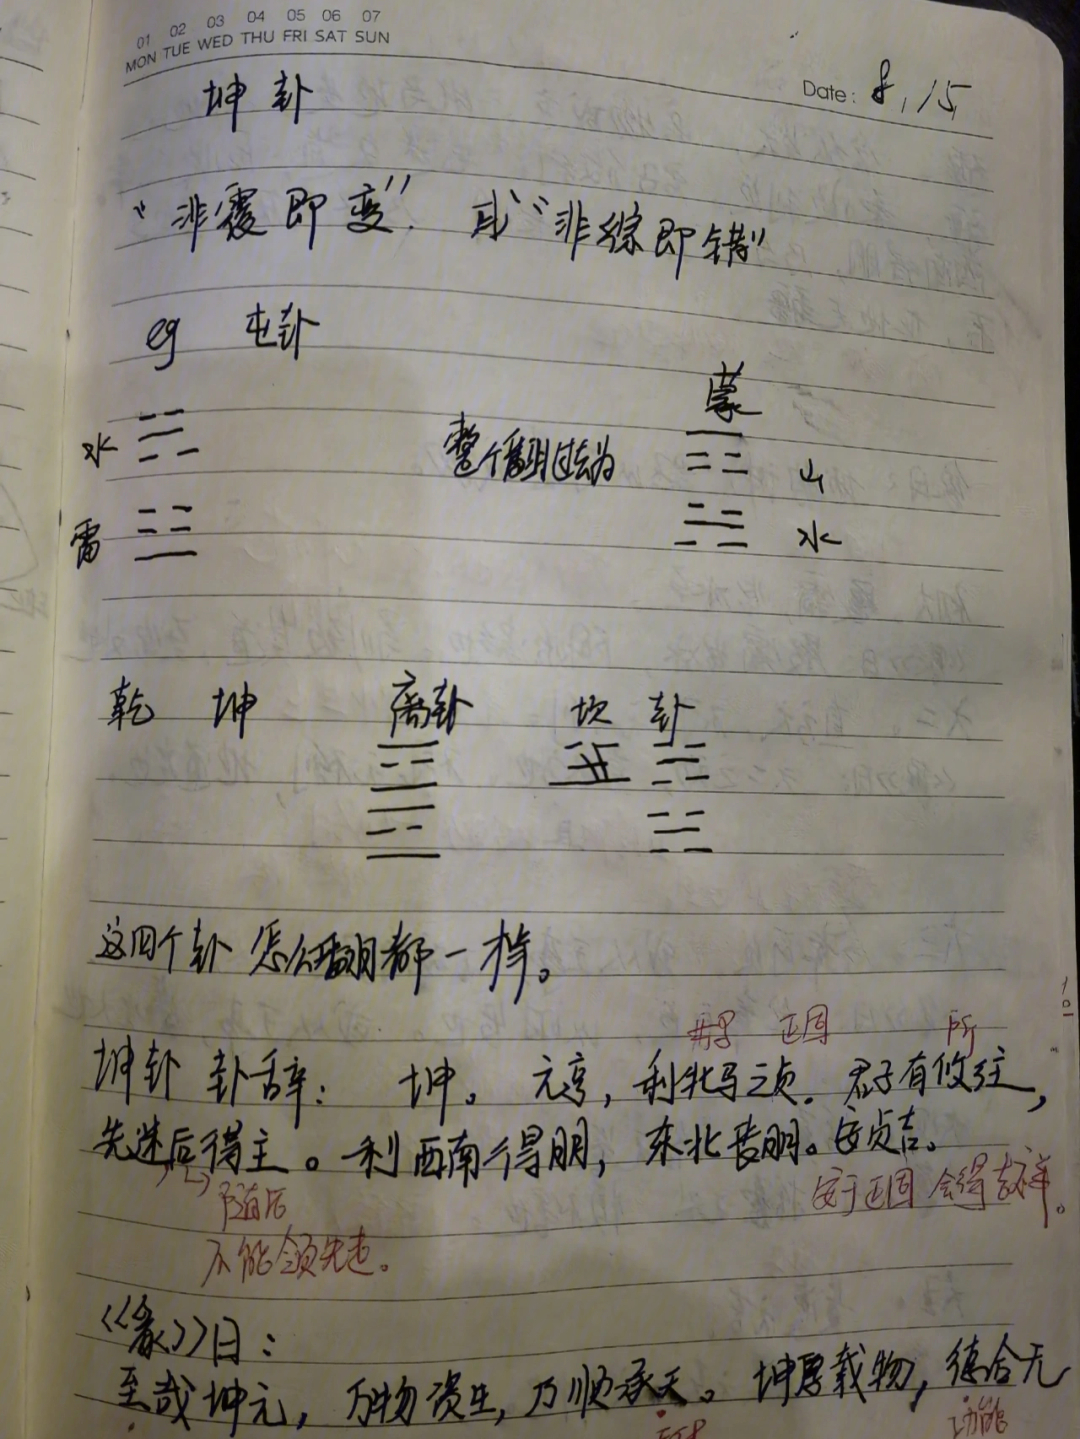 01 02 03 04 05 06 07
MON TUE WED THU FRI SAT SUN
Date: 8.15
坤卦
“非覆即变”. 或“非综即错”
eg 屯卦
蒙
水 整个翻过去为 山
雷 水
乾 坤 离卦 坎 卦
这四个卦 怎么翻都一样。
正固 所
坤卦 卦辞: 坤。元亨,利牝马之贞. 君子有攸往,
先迷后得主。利西南得朋,东北丧朋。安贞吉。
随后 安于正固 会得吉祥。
不能领先走。
《彖》曰:
至哉坤元,万物资生,乃顺承天。坤厚载物,德合无
功能